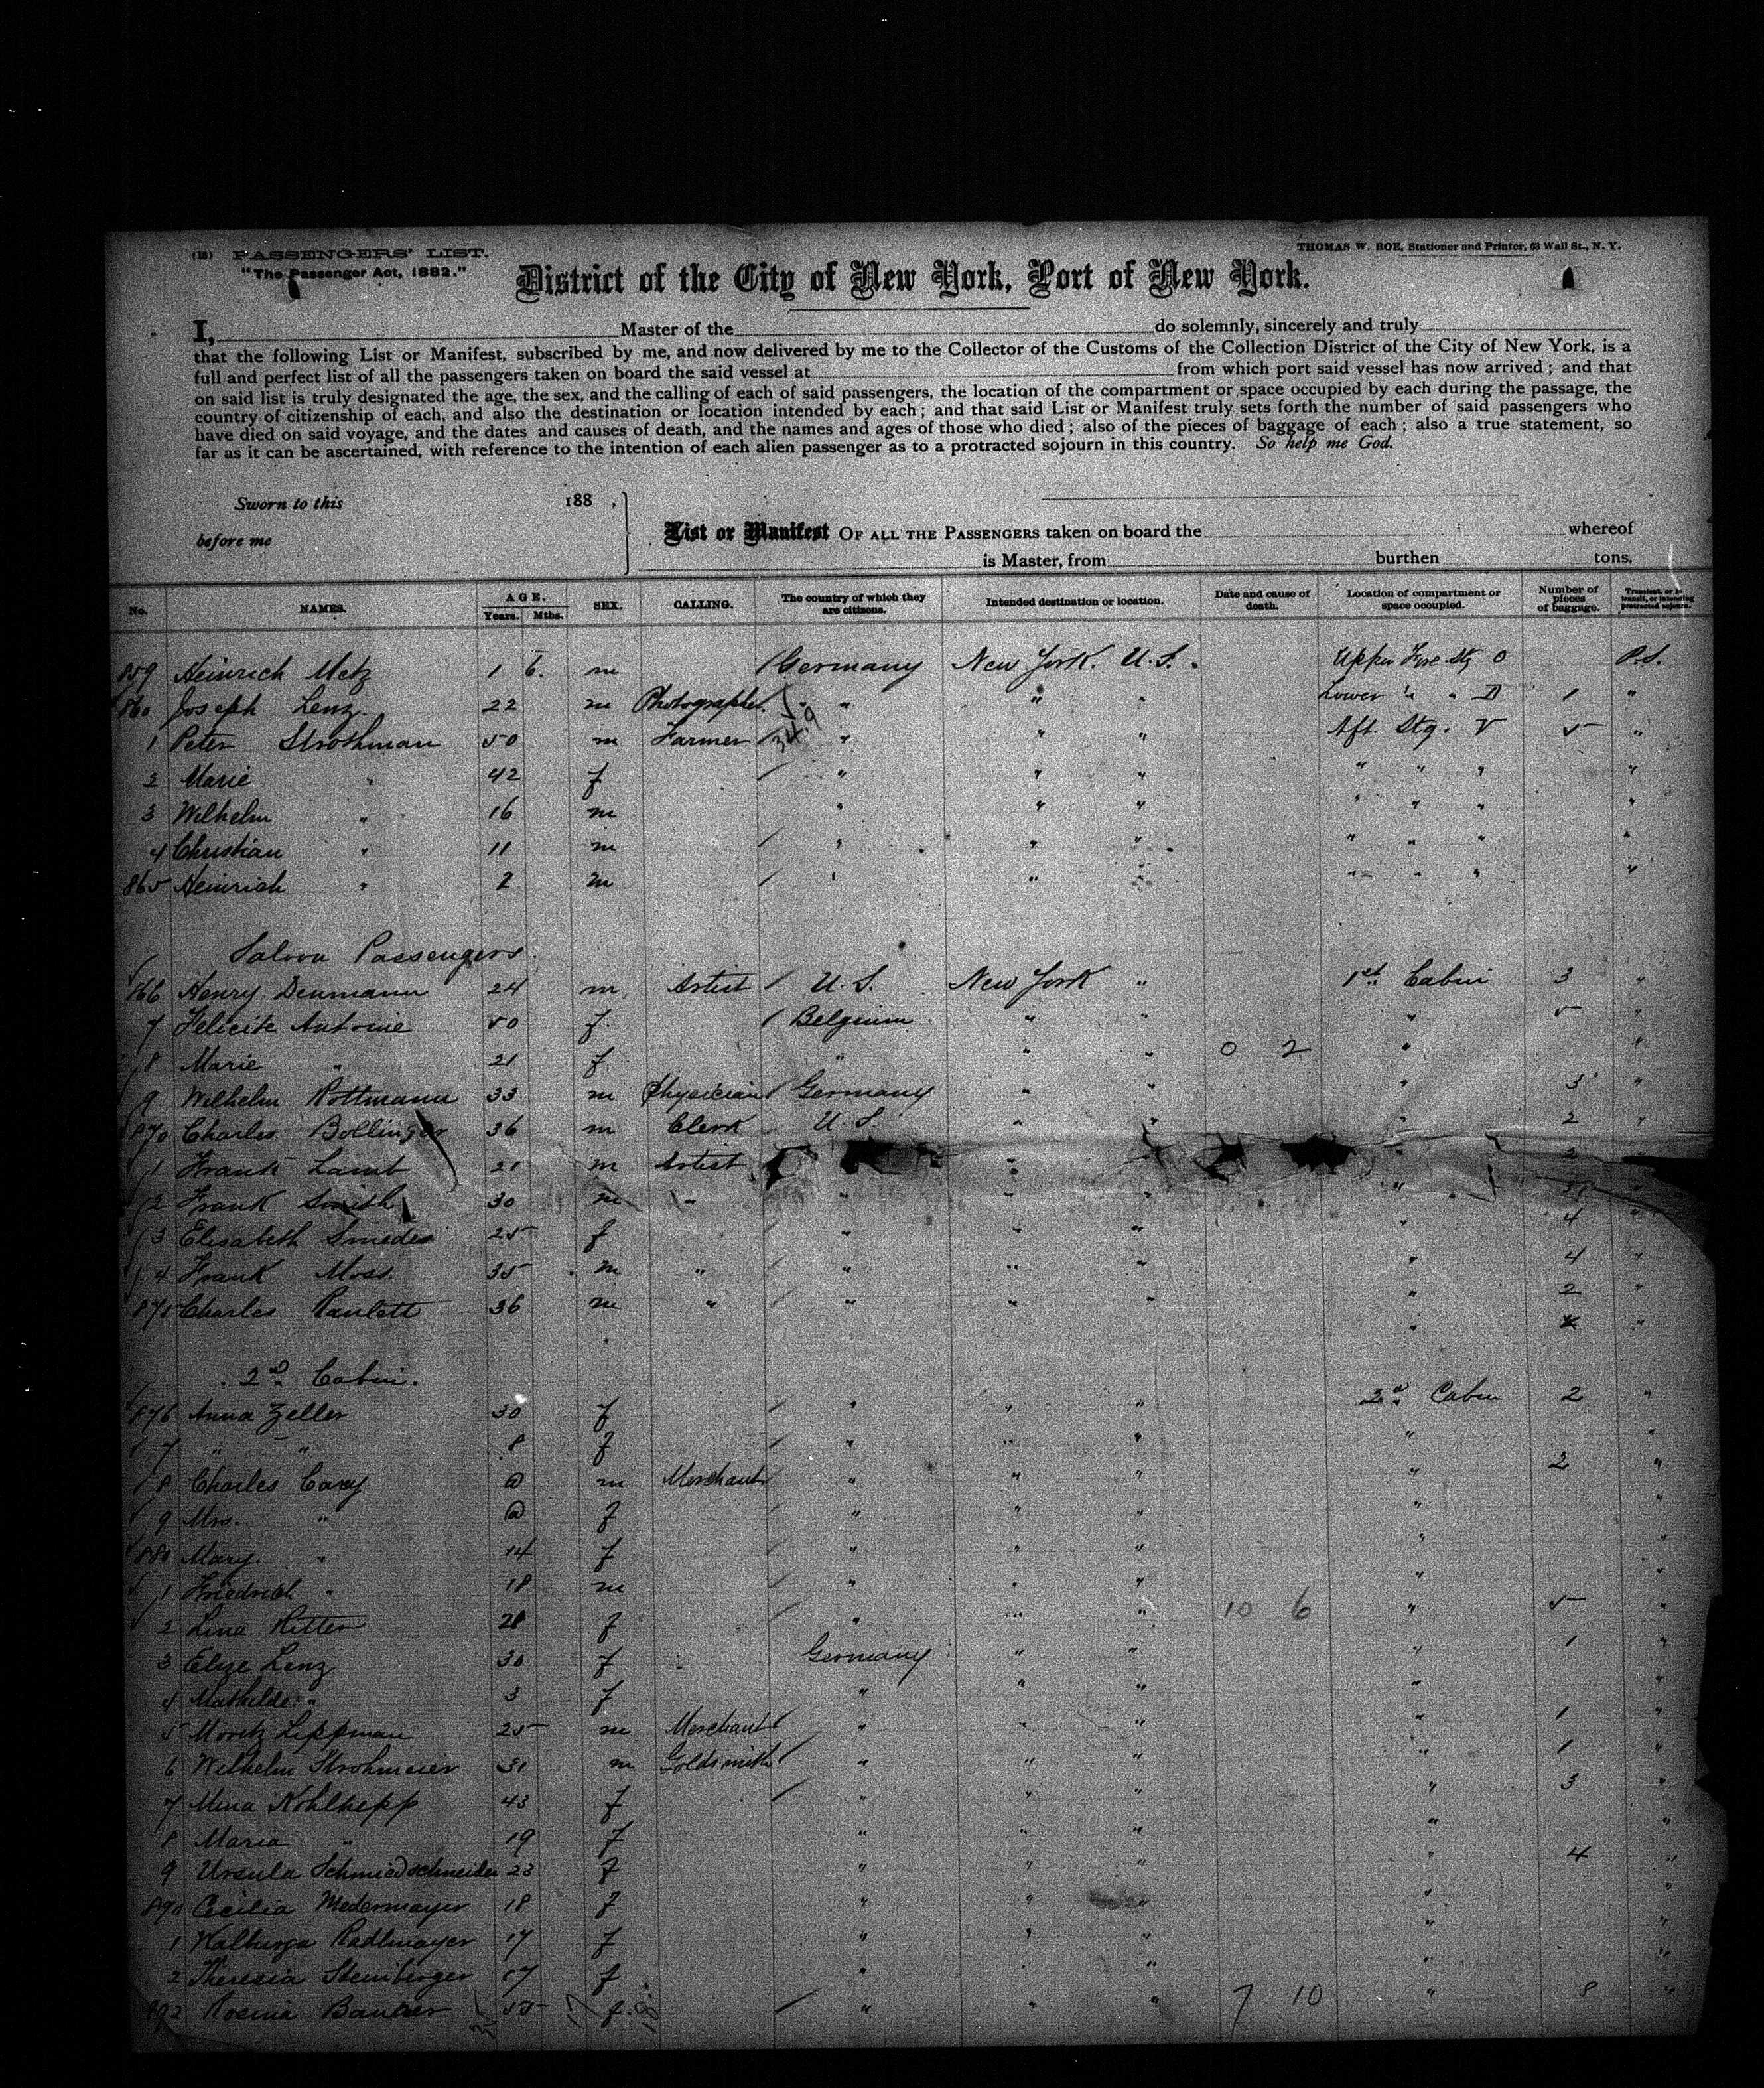 (18) PASSENGERS' LIST.
THOMAS W. ROE, Stationer and Printer, 63 Wall St., N. Y.
"The Passenger Act, 1882."
District of the City of New York, Port of New York.
I, Master of the do solemnly, sincerely and truly
that the following List or Manifest, subscribed by me, and now delivered by me to the Collector of the Customs of the Collection District of the City of New York, is a
full and perfect list of all the passengers taken on board the said vessel at from which port said vessel has now arrived; and that
on said list is truly designated the age, the sex, and the calling of each of said passengers, the location of the compartment or space occupied by each during the passage, the
country of citizenship of each, and also the destination or location intended by each; and that said List or Manifest truly sets forth the number of said passengers who
have died on said voyage, and the dates and causes of death, and the names and ages of those who died; also of the pieces of baggage of each; also a true statement, so
far as it can be ascertained, with reference to the intention of each alien passenger as to a protracted sojourn in this country. So help me God.
Sworn to this 188 ,
before me
List or Manifest OF ALL THE PASSENGERS taken on board the whereof
is Master, from burthen tons.
No. NAMES. AGE. Years. Mths. SEX. CALLING. The country of which they are citizens. Intended destination or location. Date and cause of death. Location of compartment or space occupied. Number of pieces of baggage. Transient, or in transit, or intending protracted sojourn.
859 Heinrich Metz 1 6. m Germany New York. U.S. Upper Fore Stg O P.S.
860 Joseph Lenz. 22 m Photographer " " " " Lower " " D 1 "
1 Peter Strothman 50 m Farmer " " " Aft. Stg. V 5 "
2 Marie " 42 f " " " " " " "
3 Wilhelm " 16 m " " " " " " "
4 Christian " 11 m " " " " " " "
865 Heinrich " 2 m " " " " " " "
Saloon Passengers.
866 Henry Denmann 24 m Artist U.S. New York " 1st Cabin 3 "
7 Felicite Antoine 50 f. Belgium " " " 5 "
8 Marie " 21 f. " " " 0 2 " "
9 Wilhelm Rottmann 33 m Physician Germany " " " 3 "
870 Charles Bollinger 36 m Clerk U.S. " " " 2 "
1 Frank Lamb 21 m Artist " " 2 "
2 Frank Smith 30 m " " " " " "
3 Elisabeth Smedes 25 f " " " " 4 "
4 Frank Moss. 35 m " " " " " 4 "
875 Charles Paulett 36 m " " " " " 2 "
2d Cabin.
876 Anna Zeller 30 f " " " 2d Cabin 2 "
7 " " 8 f " " " " "
8 Charles Carey @ m Merchant " " " " 2 "
9 Mrs. " @ f " " " " "
880 Mary. " 14 f " " " " "
1 Friedrich " 18 m " " " " "
2 Lina Ritter 28 f " " " 10 6 " 5 "
3 Elize Lenz 30 f Germany " " " 1 "
4 Mathilde " 3 f " " " " "
5 Moritz Lippman 25 m Merchant " " " " 1 "
6 Wilhelm Strohmeier 31 m Goldsmith " " " " 1 "
7 Mina Kohlhepp 43 f " " " " 3 "
8 Maria " 19 f " " " " "
9 Ursula Schmiedschneider 23 f " " " " 4 "
890 Cecilia Medermayer 18 f " " " " "
1 Walburga Radlmayer 17 f " " " " "
2 Theresia Steinberger 17 f " " " "
Rosina 55 f. " " " 7 10 " 8 "